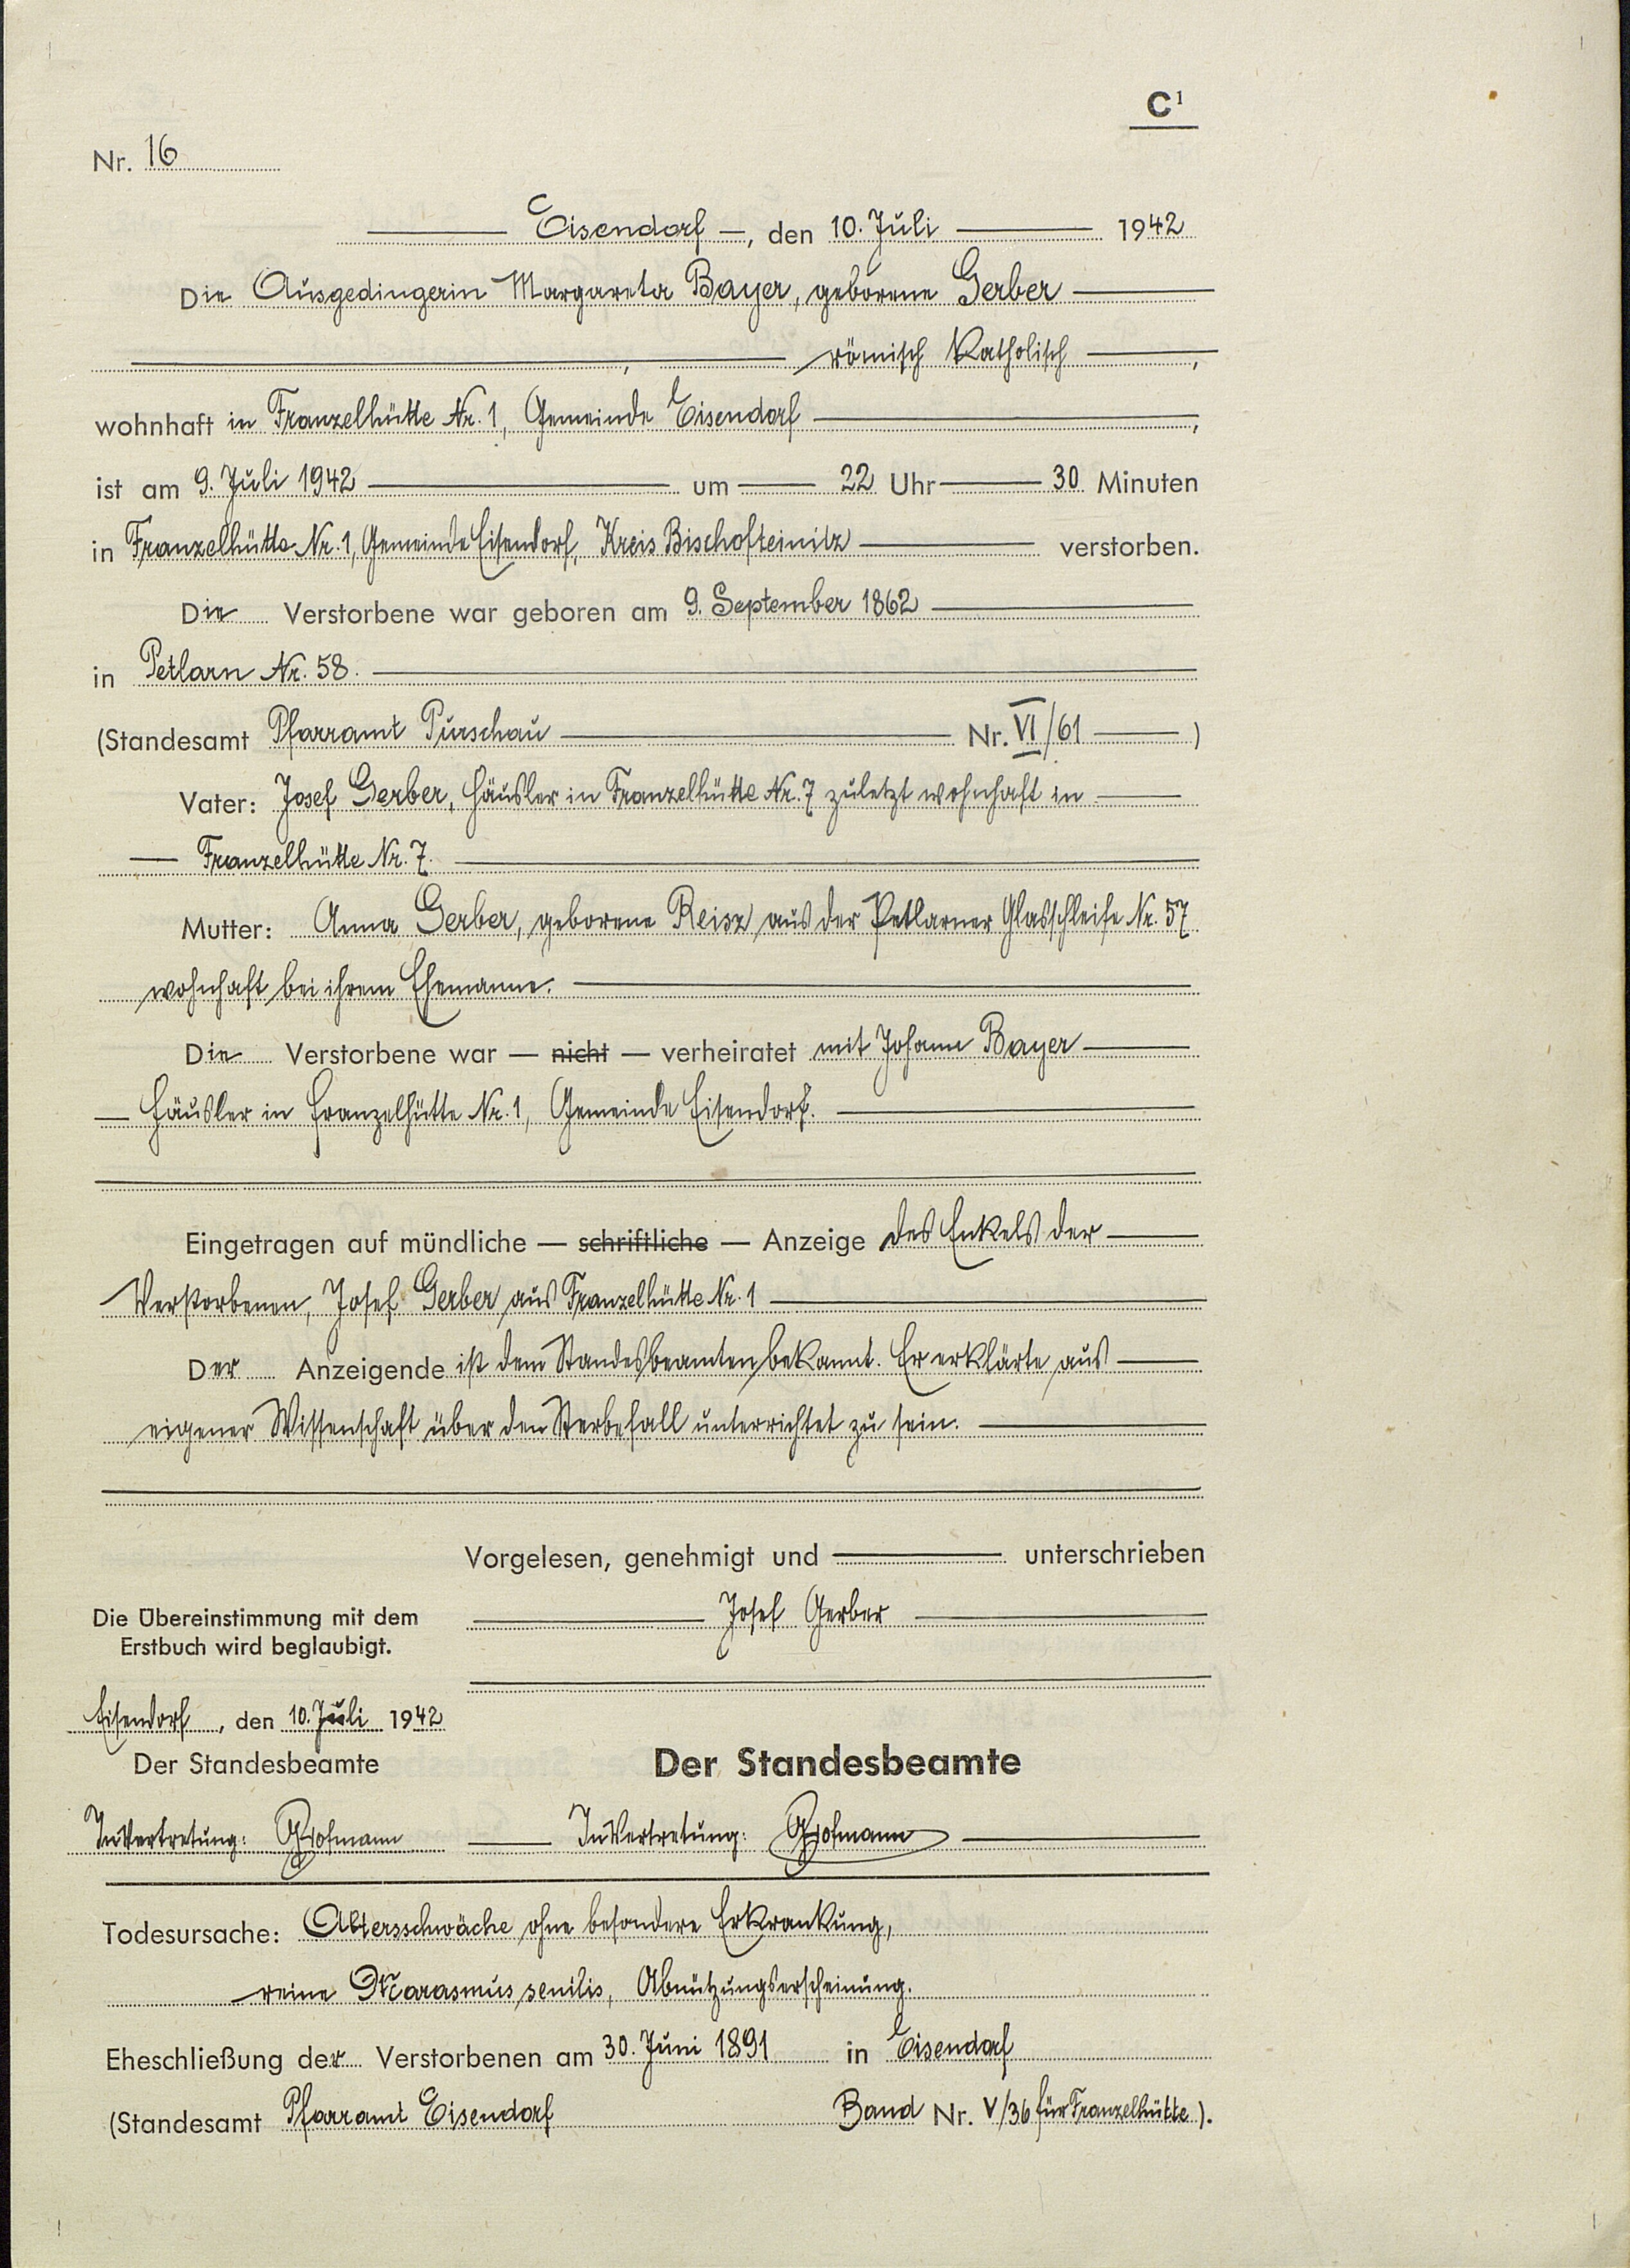 C¹
Nr. 16
Eisendorf —, den 10. Juli 1942
Die Ausgedingerin Margareta Bayer, geborene Gerber
, römisch Katholisch ,
wohnhaft in Franzelhütte Nr. 1, Gemeinde Eisendorf ,
ist am 9. Juli 1942 um 22 Uhr 30 Minuten
in Franzelhütte Nr. 1, Gemeinde Eisendorf, Kreis Bischofteinitz verstorben.
Die Verstorbene war geboren am 9. September 1862
in Petlarn Nr. 58.
(Standesamt Pfarramt Purschau Nr. VI/61 )
Vater: Josef Gerber, Häusler in Franzelhütte Nr. 7 zuletzt wohnhaft in
— Franzelhütte Nr. 7.
Mutter: Anna Gerber, geborene Reisz aus der Petlarner Glasschleife Nr. 57
wohnhaft bei ihrem Ehemanne.
Die Verstorbene war — nicht — verheiratet mit Johann Bayer
— Häusler in Franzelhütte Nr. 1, Gemeinde Eisendorf.
Eingetragen auf mündliche — schriftliche — Anzeige des Enkels der
Verstorbenen, Josef Gerber aus Franzelhütte Nr. 1
Der Anzeigende ist dem Standesbeamten bekannt. Er erklärte, aus
eigener Wissenschaft über den Sterbefall unterrichtet zu sein.
Vorgelesen, genehmigt und unterschrieben
Josef Gerber
Die Übereinstimmung mit dem
Erstbuch wird beglaubigt.
Eisendorf, den 10. Juli 1942
Der Standesbeamte
Der Standesbeamte
In Vertretung: In Vertretung:
Todesursache: Altersschwäche ohne besondere Erkrankung,
reine Marasmus senilis, Abnützungserscheinung.
Eheschließung der Verstorbenen am 30. Juni 1891 in Eisendorf
(Standesamt Pfarramt Eisendorf Band Nr. V/36 für Franzelhütte ).